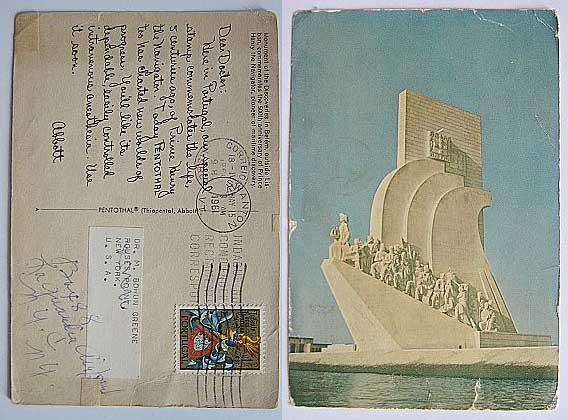 Monument of the Discoveries at Belem, outside Lis-
bon, commemorates the 500th anniversary of Prince
Henry the Navigator, pioneer of maritime discovery.
Dear Doctor:
Here in Portugal, our special
stamp commemorates the life,
5 centuries ago, of Prince Henry
the Navigator. Today PENTOTHAL
too has charted new worlds of
progress. You'll like its
dependable, easily controlled
intravenous anesthesia. Use
it soon.
Abbott
PENTOTHAL® (Thiopental, Abbott)
1961
DR. M. BOHUN GREENE
ROUSES POINT,
NEW YORK.
U. S. A.
Box 88
La Guardia
N.Y. N.Y.
PORTUGAL